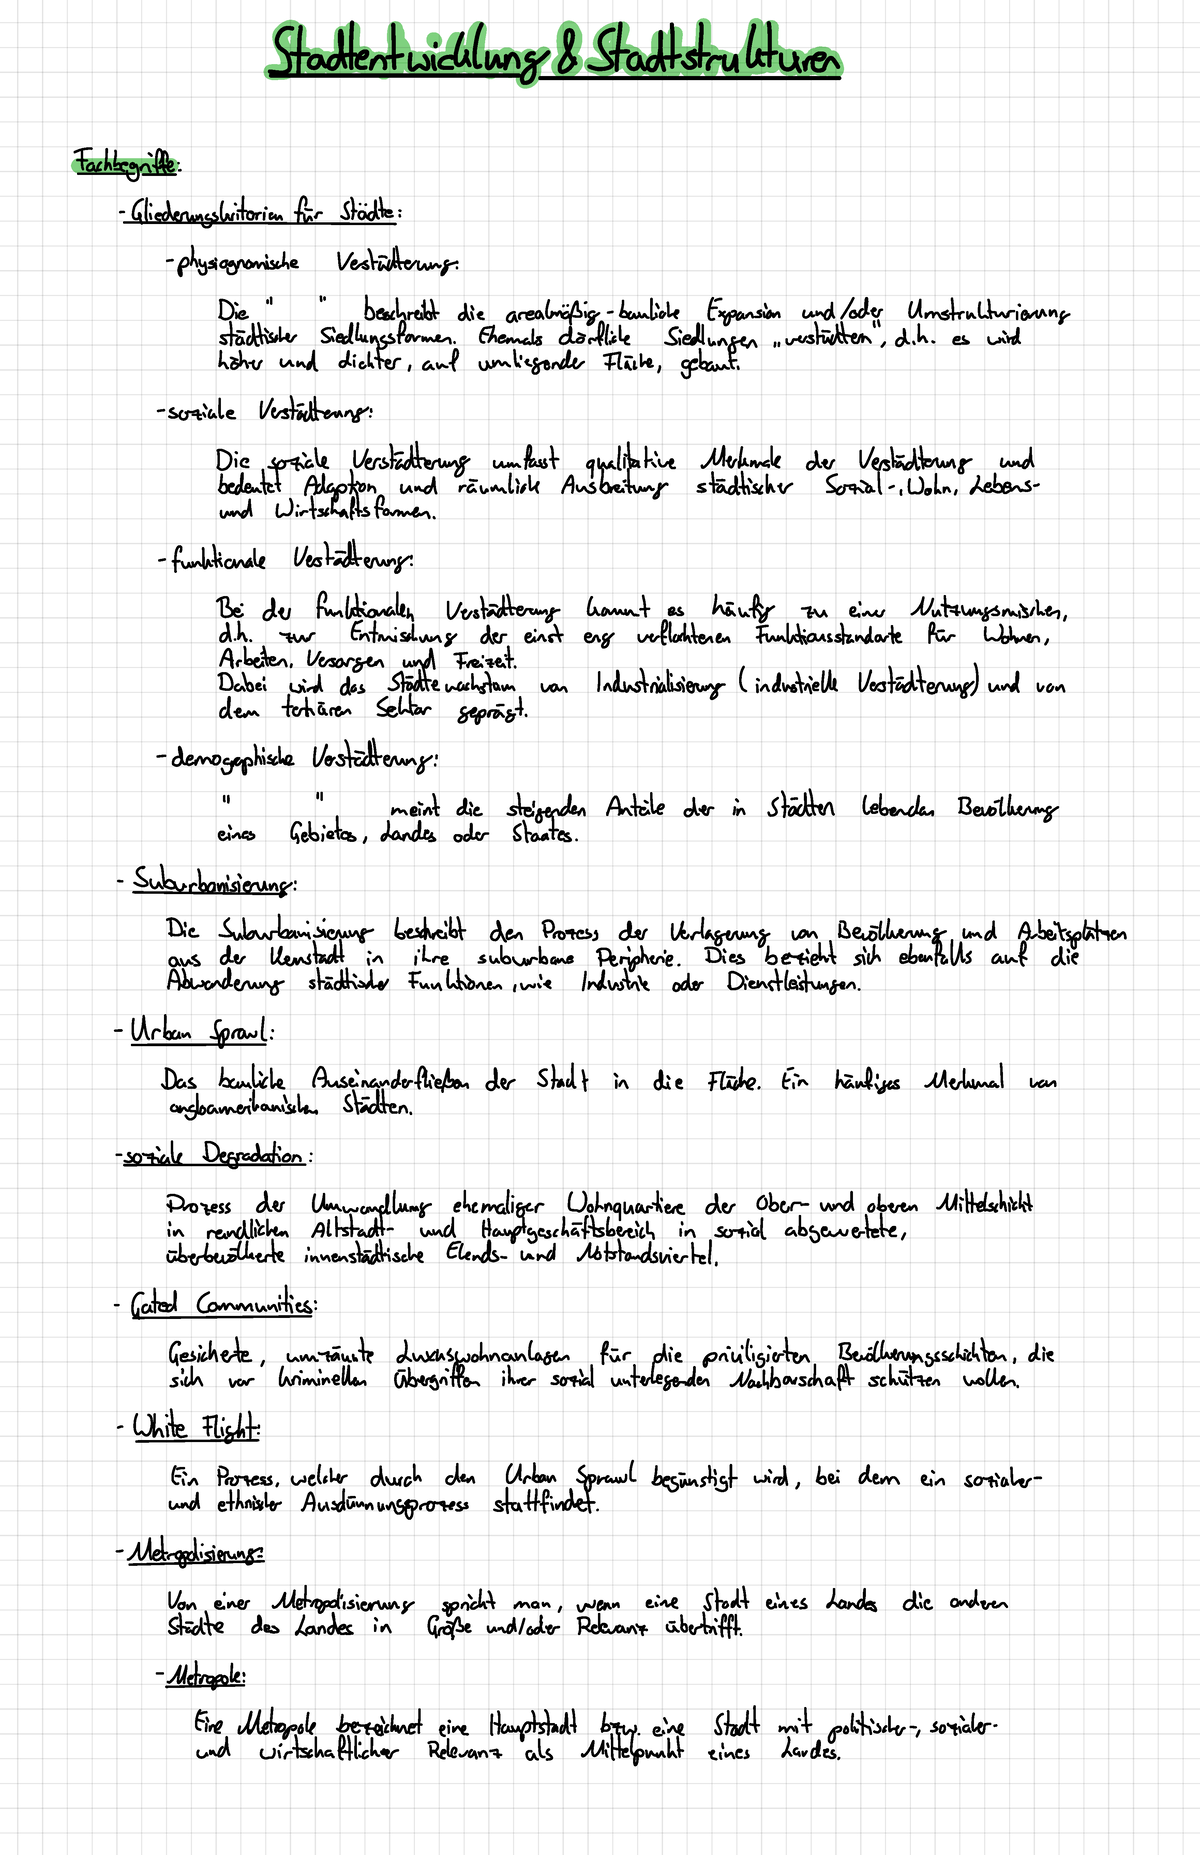 Stadtentwicklung & Stadtstrukturen
Fachbegriffe:
- Gliederungskriterien für Städte:
- physiognomische Verstädterung:
Die " " beschreibt die arealmäßig-bauliche Expansion und/oder Umstrukturierung
städtischer Siedlungsformen. Ehemals dörfliche Siedlungen „verstädten", d.h. es wird
höher und dichter, auf umliegender Fläche, gebaut.
- soziale Verstädterung:
Die soziale Verstädterung umfasst qualitative Merkmale der Verstädterung und
bedeutet Adaption und räumliche Ausbreitung städtischer Sozial-, Wohn, Lebens-
und Wirtschaftsformen.
- funktionale Verstädterung:
Bei der funktionalen Verstädterung kommt es häufig zu einer Nutzungsmischen,
d.h. zur Entmischung der einst eng verflochtenen Funktionsstandorte für Wohnen,
Arbeiten, Versorgen und Freizeit.
Dabei wird das Städtewachstum von Industrialisierung (industrielle Verstädterung) und von
dem tertiären Sektor geprägt.
- demographische Verstädterung:
" " meint die steigenden Anteile der in Städten lebenden Bevölkerung
eines Gebietes, Landes oder Staates.
- Suburbanisierung:
Die Suburbanisierung beschreibt den Prozess der Verlagerung von Bevölkerung und Arbeitsplätzen
aus der Kernstadt in ihre suburbane Peripherie. Dies bezieht sich ebenfalls auf die
Abwanderung städtischer Funktionen, wie Industrie oder Dienstleistungen.
- Urban Sprawl:
Das bauliche Auseinanderfließen der Stadt in die Fläche. Ein häufiges Merkmal von
angloamerikanischen Städten.
- soziale Degradation:
Prozess der Umwandlung ehemaliger Wohnquartiere der Ober- und oberen Mittelschicht
in randlichen Altstadt- und Hauptgeschäftsbereich in sozial abgewertete,
überbevölkerte innenstädtische Elends- und Notstandsviertel.
- Gated Communities:
Gesicherte, umzäunte Luxuswohnanlagen für die priviligierten Bevölkerungsschichten, die
sich vor kriminellen Übergriffen ihrer sozial unterlegenden Nachbarschaft schützen wollen.
- White Flight:
Ein Prozess, welcher durch den Urban Sprawl begünstigt wird, bei dem ein sozialer-
und ethnischer Ausdünnungsprozess stattfindet.
- Metropolisierung:
Von einer Metropolisierung spricht man, wenn eine Stadt eines Landes die anderen
Städte des Landes in Größe und/oder Relevanz übertrifft.
- Metropole:
Eine Metropole bezeichnet eine Hauptstadt bzw. eine Stadt mit politischer-, sozialer-
und wirtschaftlicher Relevanz als Mittelpunkt eines Landes.